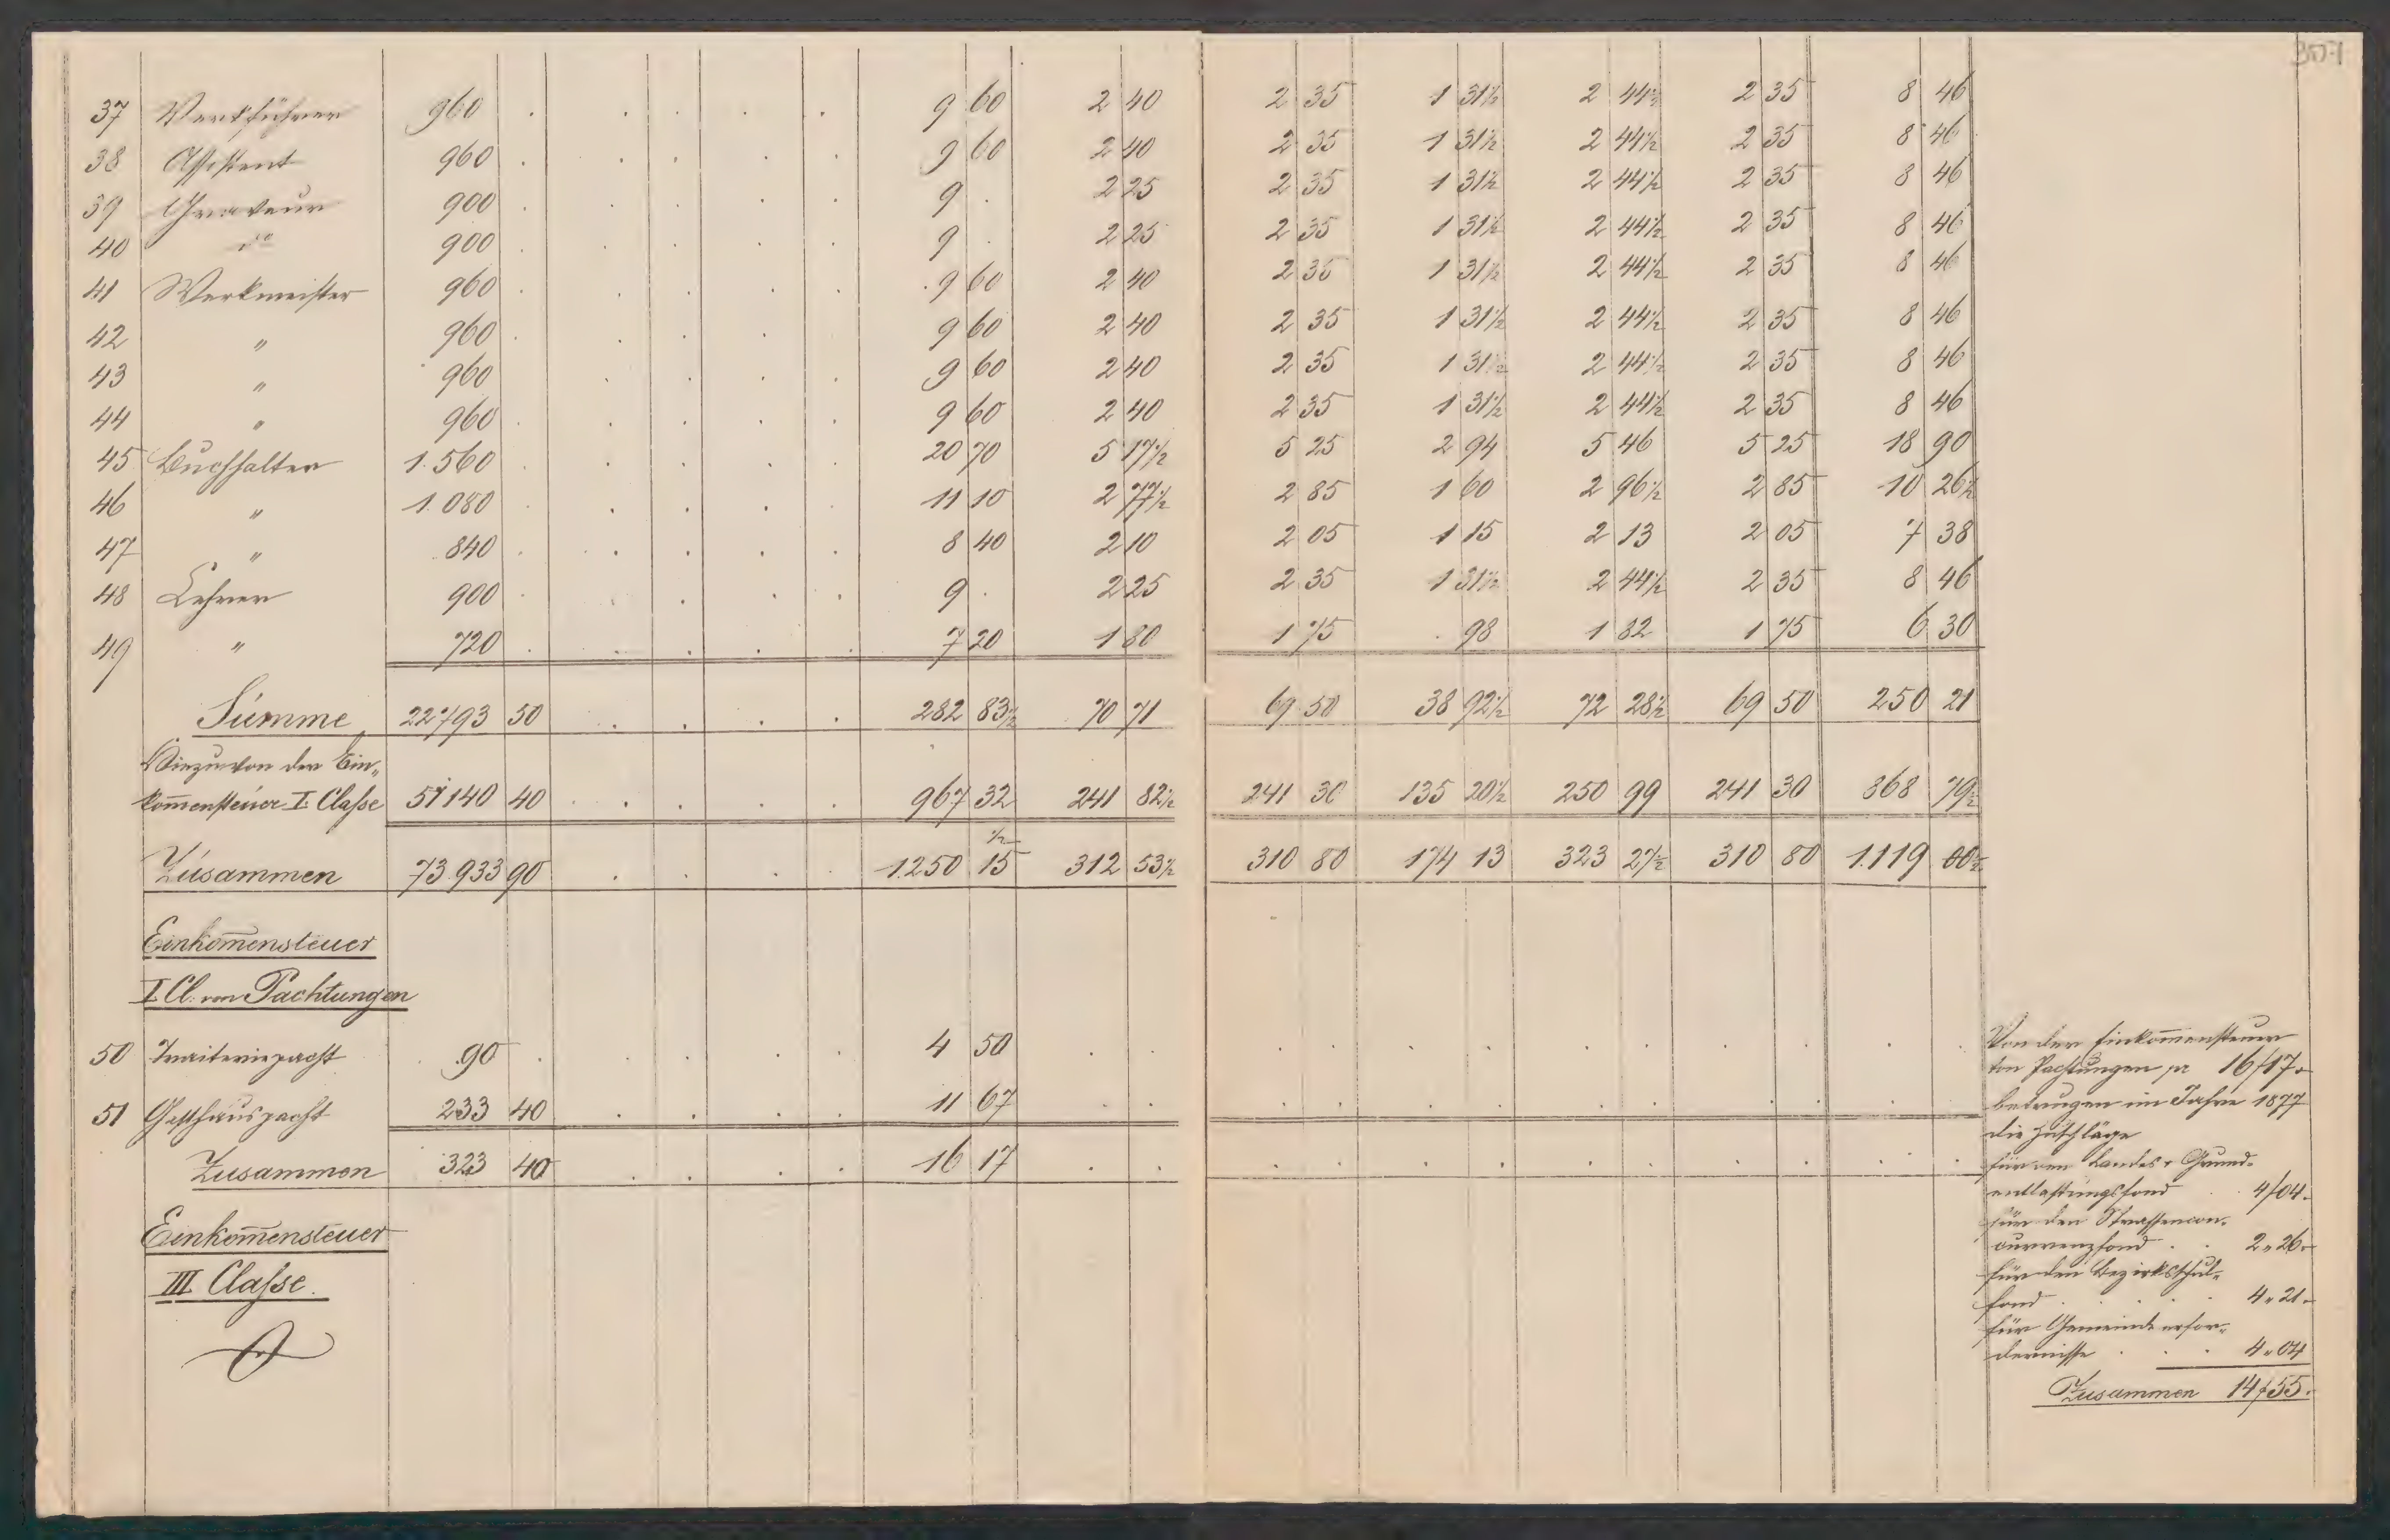 307
37 Werkführer 960 . . . . . 9 60 2 40 2 35 1 31½ 2 44½ 2 35 8 46
38 Assistent 960 . . . . . 9 60 2 40 2 35 1 31½ 2 44½ 2 35 8 46
39 Graveur 900 . . . . . 9 . 2 25 2 35 1 31½ 2 44½ 2 35 8 46
40 do 900 . . . . . 9 . 2 25 2 35 1 31½ 2 44½ 2 35 8 46
41 Werkmeister 960 . . . . . 9 60 2 40 2 35 1 31½ 2 44½ 2 35 8 46
42 " 960 . . . . . 9 60 2 40 2 35 1 31½ 2 44½ 2 35 8 46
43 " 960 . . . . 9 60 2 40 2 35 1 31½ 2 44½ 2 35 8 46
44 " 960 . . . . . 9 60 2 40 2 35 1 31½ 2 44½ 2 35 8 46
45 Buchhalter 1.560 . . . . . 20 70 5 17½ 5 25 2 94 5 46 5 25 18 90
46 " 1.080 . . . . . 11 10 2 77½ 2 85 1 60 2 96½ 2 85 10 26½
47 " 840 . . . . . 8 40 2 10 2 05 1 15 2 13 2 05 7 38
48 Lehrer 900 . . . . . 9 . 2 25 2 35 1 31½ 2 44½ 2 35 8 46
49 " 720 . . . . . 7 20 1 80 1 75 . 98 1 82 1 75 6 30
Summe 22793 50 . . . . 282 83½ 70 71 69 50 38 92½ 72 28½ 69 50 250 21
Hiezu von der Ein„
kom̄ensteuer I. Classe 51140 40 . . . . . 967 32 241 82½ 241 30 135 20½ 250 99 241 30 868 79½
Zusammen 73.933 90 . . . . 1.250 15½ 312 53½ 310 80 174 13 323 27½ 310 80 1.119 00½
Einkom̄ensteuer
I Cl. von Pachtungen
50 Traiteriepacht 90 . . . . . 4 50 . . . . . . . . . . . .
51 Gasthauspacht 233 40 . . . . 11 67 . . . . . . . . . . . .
Zusammen 323 40 . . . . 16 17 . . . . . . . . . . . .
Einkom̄ensteuer
III Classe.
Von der Einkom̄ensteuer
von Pachtungen pr 16/17.
betrugen im Jahre 1877
die Zuschläge
für den Landes & Grund-
entlastungsfond . 4/04.
für den Strassencon-
currenzfond . . 2„26.
für den Bezirksschul-
fond . . . . 4„21.
für Gemeindeerfor-
dernisse . . . 4„04
Zusammen 14/55.